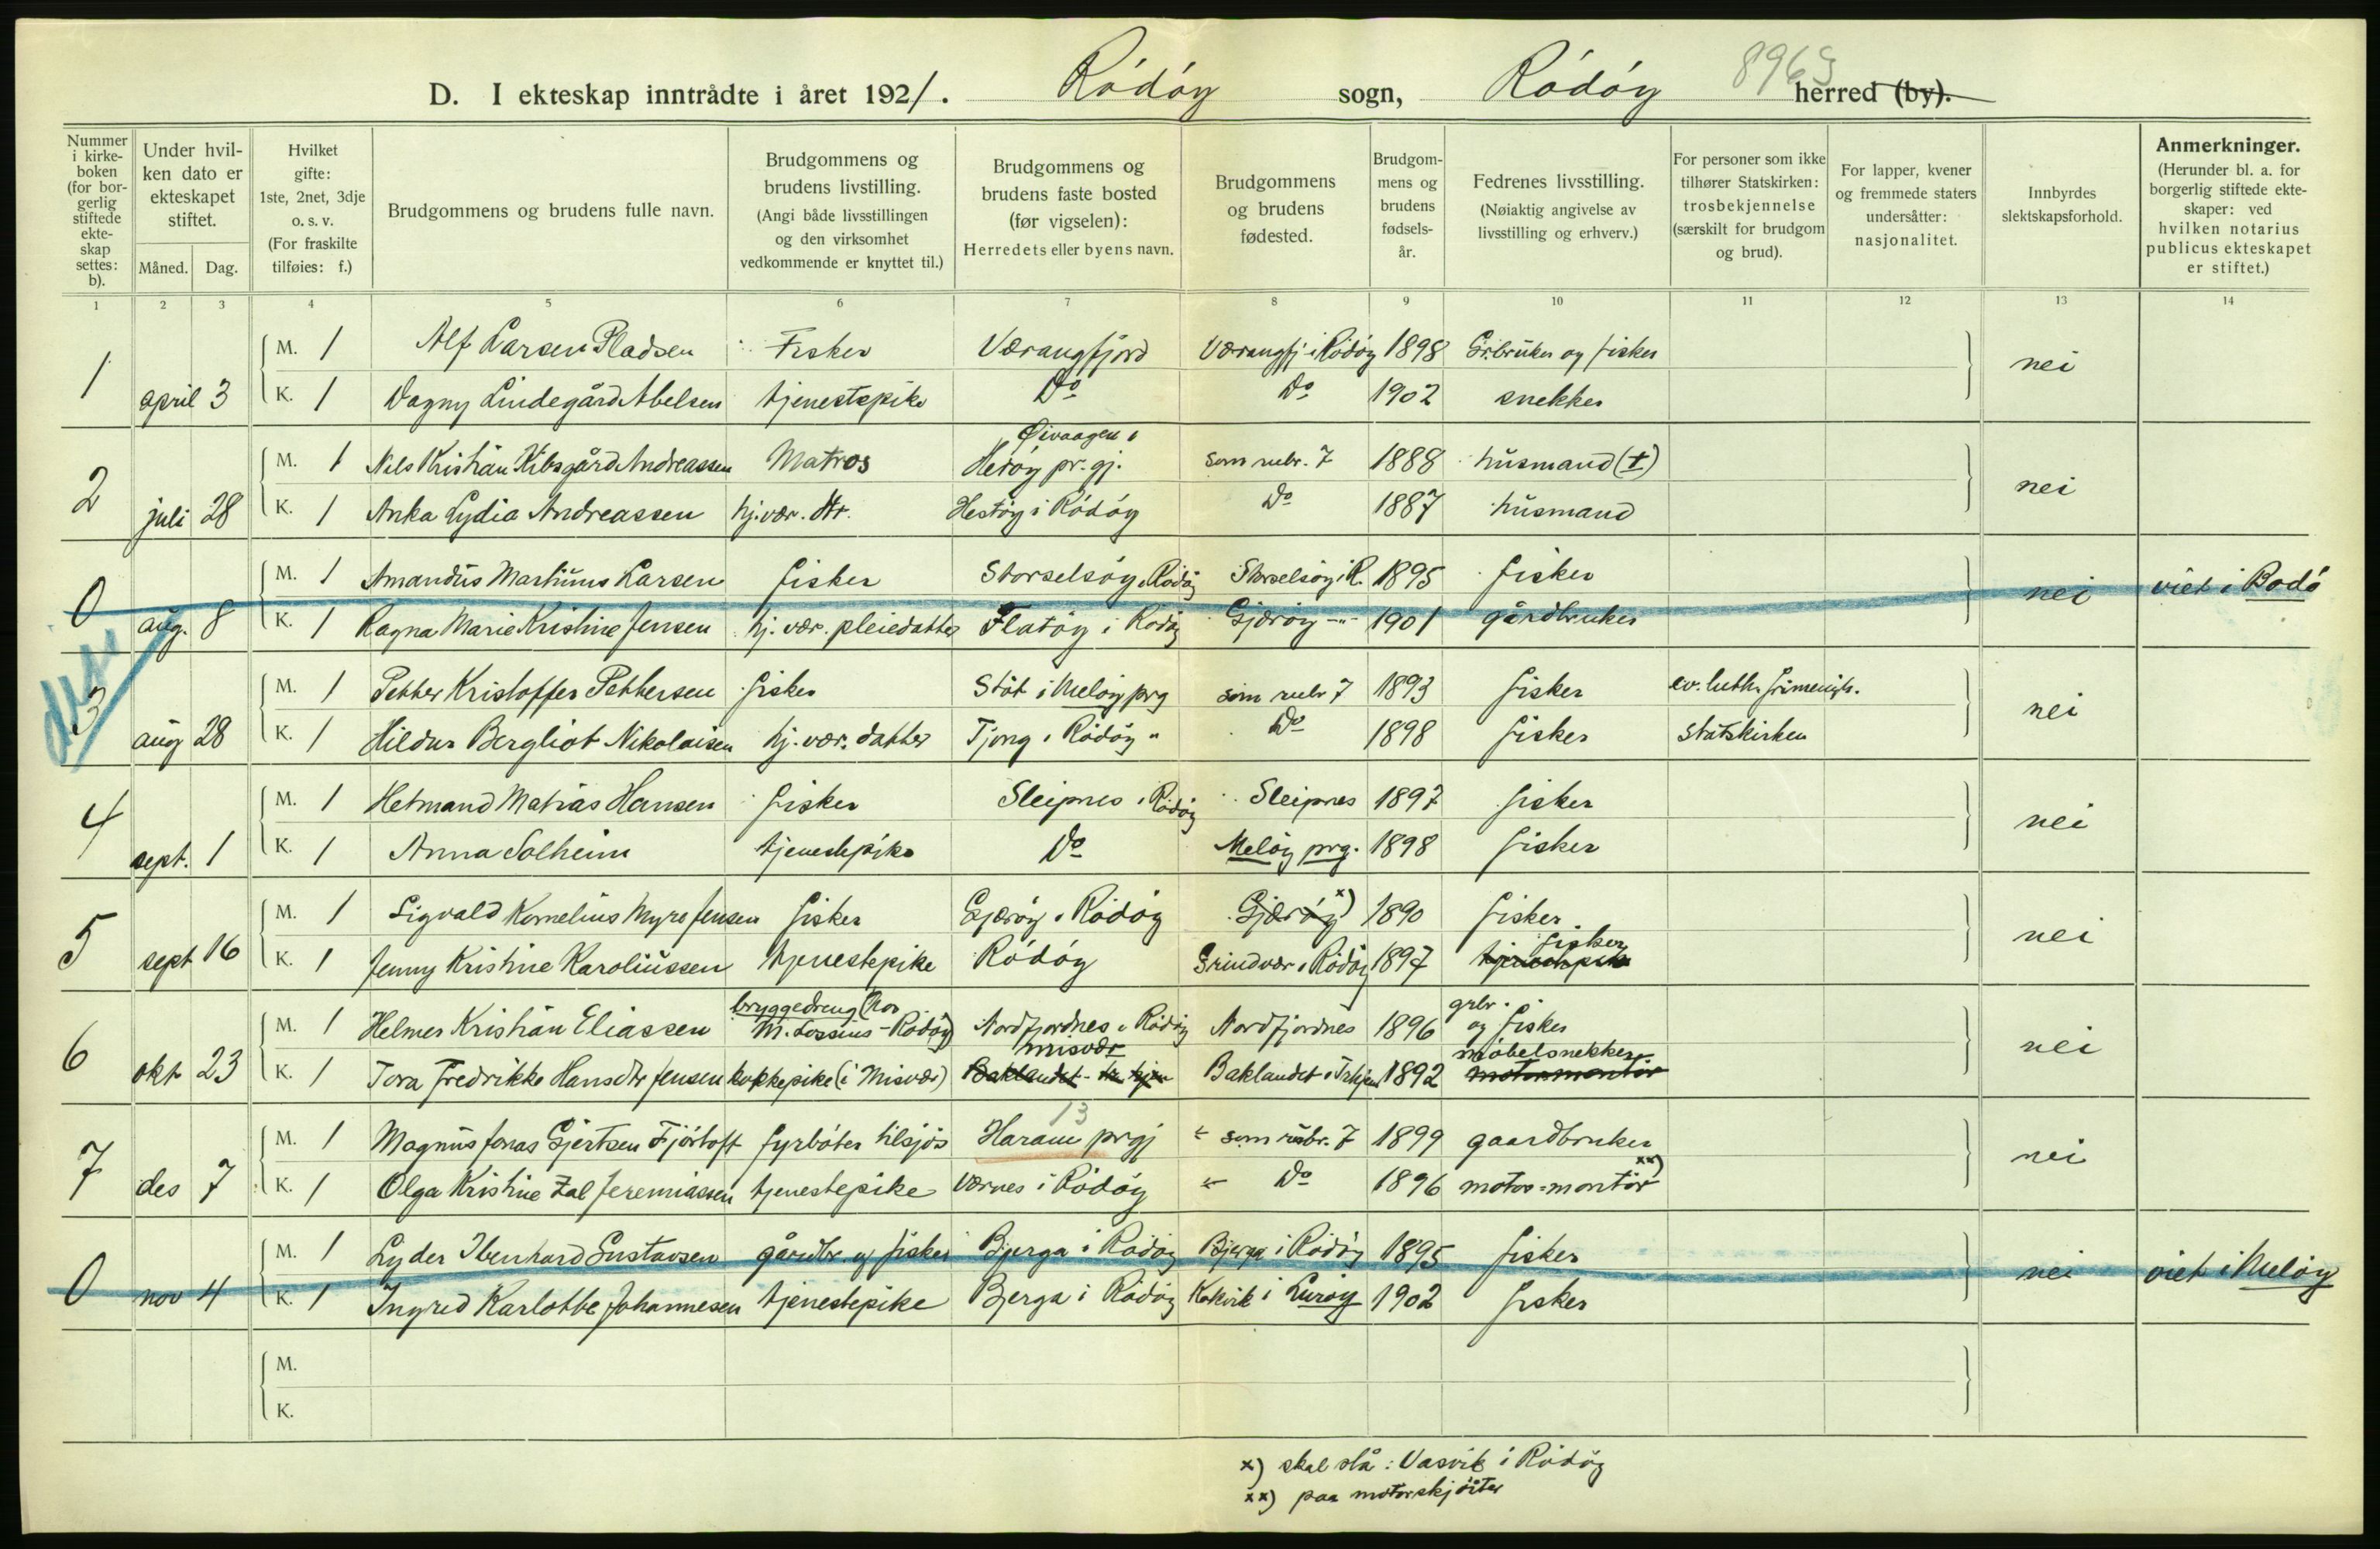 8963
D. I ekteskap inntrådte i året 1921. Rödöy sogn, Rödöy herred (by).
Nummer i kirkeboken (for borgerlig stiftede ekteskap settes: b).
Under hvilken dato er ekteskapet stiftet.
Måned. Dag.
Hvilket gifte: 1ste, 2net, 3dje o. s. v. (For fraskilte tilføies: f.)
Brudgommens og brudens fulle navn.
Brudgommens og brudens livstilling. (Angi både livsstillingen og den virksomhet vedkommende er knyttet til.)
Brudgommens og brudens faste bosted (før vigselen): Herredets eller byens navn.
Brudgommens og brudens fødested.
Brudgommens og brudens fødselsår.
Fedrenes livsstilling. (Nøiaktig angivelse av livsstilling og erhverv.)
For personer som ikke tilhører Statskirken: trosbekjennelse (særskilt for brudgom og brud).
For lapper, kvener og fremmede staters undersåtter: nasjonalitet.
Innbyrdes slektskapsforhold.
Anmerkninger. (Herunder bl. a. for borgerlig stiftede ekteskaper: ved hvilken notarius publicus ekteskapet er stiftet.)
1 2 3 4 5 6 7 8 9 10 11 12 13 14
M. 1 Alf Larsen Pladsen Fisker Værangfjord Værangfj. i Rödöy 1898 Gr.bruker og fisker
1 april 3 K. 1 Dagny Lindegård Abelsen tjenestepike Do Do 1902 snekker nei
Öivaagen i
M. 1 Nils Kristian Kibsgård Andreassen Matros Heröy pr.gj. som rubr. 7 1888 husmand (†)
2 juli 28 K. 1 Anka Lydia Andreassen hj. vær. dtr. Hestöy i Rödöy Do 1887 husmand nei
M. 1 Amandus Martinus Larsen fisker Storselsöy i Rödöy Storselsöy i R. 1895 fisker
0 aug. 8 K. 1 Ragna Marie Kristine Jensen hj. vær. pleiedatter Flatöy i Rödöy Gjeröy -"- 1901 gårdbruker nei viet i Bodö
M. 1 Petter Kristoffer Pettersen fisker Stöt i Meløy prg som rubr 7 1893 fisker ev. luth. frimenigh.
3 aug 28 K. 1 Hildur Bergliot Nikolaisen hj. vær. datter Tjong i Rödöy " Do 1898 fisker statskirken nei
M. 1 Hetmand Matias Hansen fisker Sleipnes i Rödöy Sleipnes 1897 fisker
4 sept. 1 K. 1 Anna Solheim tjenestepike Do Melöy prg. 1898 fisker nei
M. 1 Sigvald Kornelius Myre Jensen fisker Gjeröy i Rödöy Gjeröy x) 1890 fisker
5 sept 16 K. 1 Jenny Kristine Karoliussen tjenestepike Rödöy Grindvær i Rödöy 1897 tjenestepike fisker nei
M. 1 Helmer Kristian Eliassen bryggedreng (hos M. Lossius - Rödöy) Nordfjordnes i Rödöy Nordfjordnes 1896 grbr. og fisker
6 okt 23 K. 1 Tora Fredrikke Hansdtr Jensen kokkepike (i Misvær) Baklandet misvær Baklandet i Trhjem 1892 motormontör möbelsnekker nei
13
M. 1 Magnus Jonas Gjertsen Fjörtoft fyrböter tilsjös Haram prgj som rubr. 7 1899 gaardbruker
7 des 7 K. 1 Olga Kristine Zal Jeremiassen tjenestepike Værnes i Rödöy Do 1896 motor=montör xx) nei
M. 1 Lyder Ibenhard Gustavsen gårdbr. og fisker Bjerga i Rödöy Bjerga i Rödöy 1895 fisker
0 nov 4 K. 1 Ingred Karlotte Johannesen tjenestepike Bjerga i Rödöy Kokvik i Luröy 1902 fisker nei viet i Melöy
M.
K.
x) skal stå: Vasvik i Rödöy
xx) paa motorskjöiter